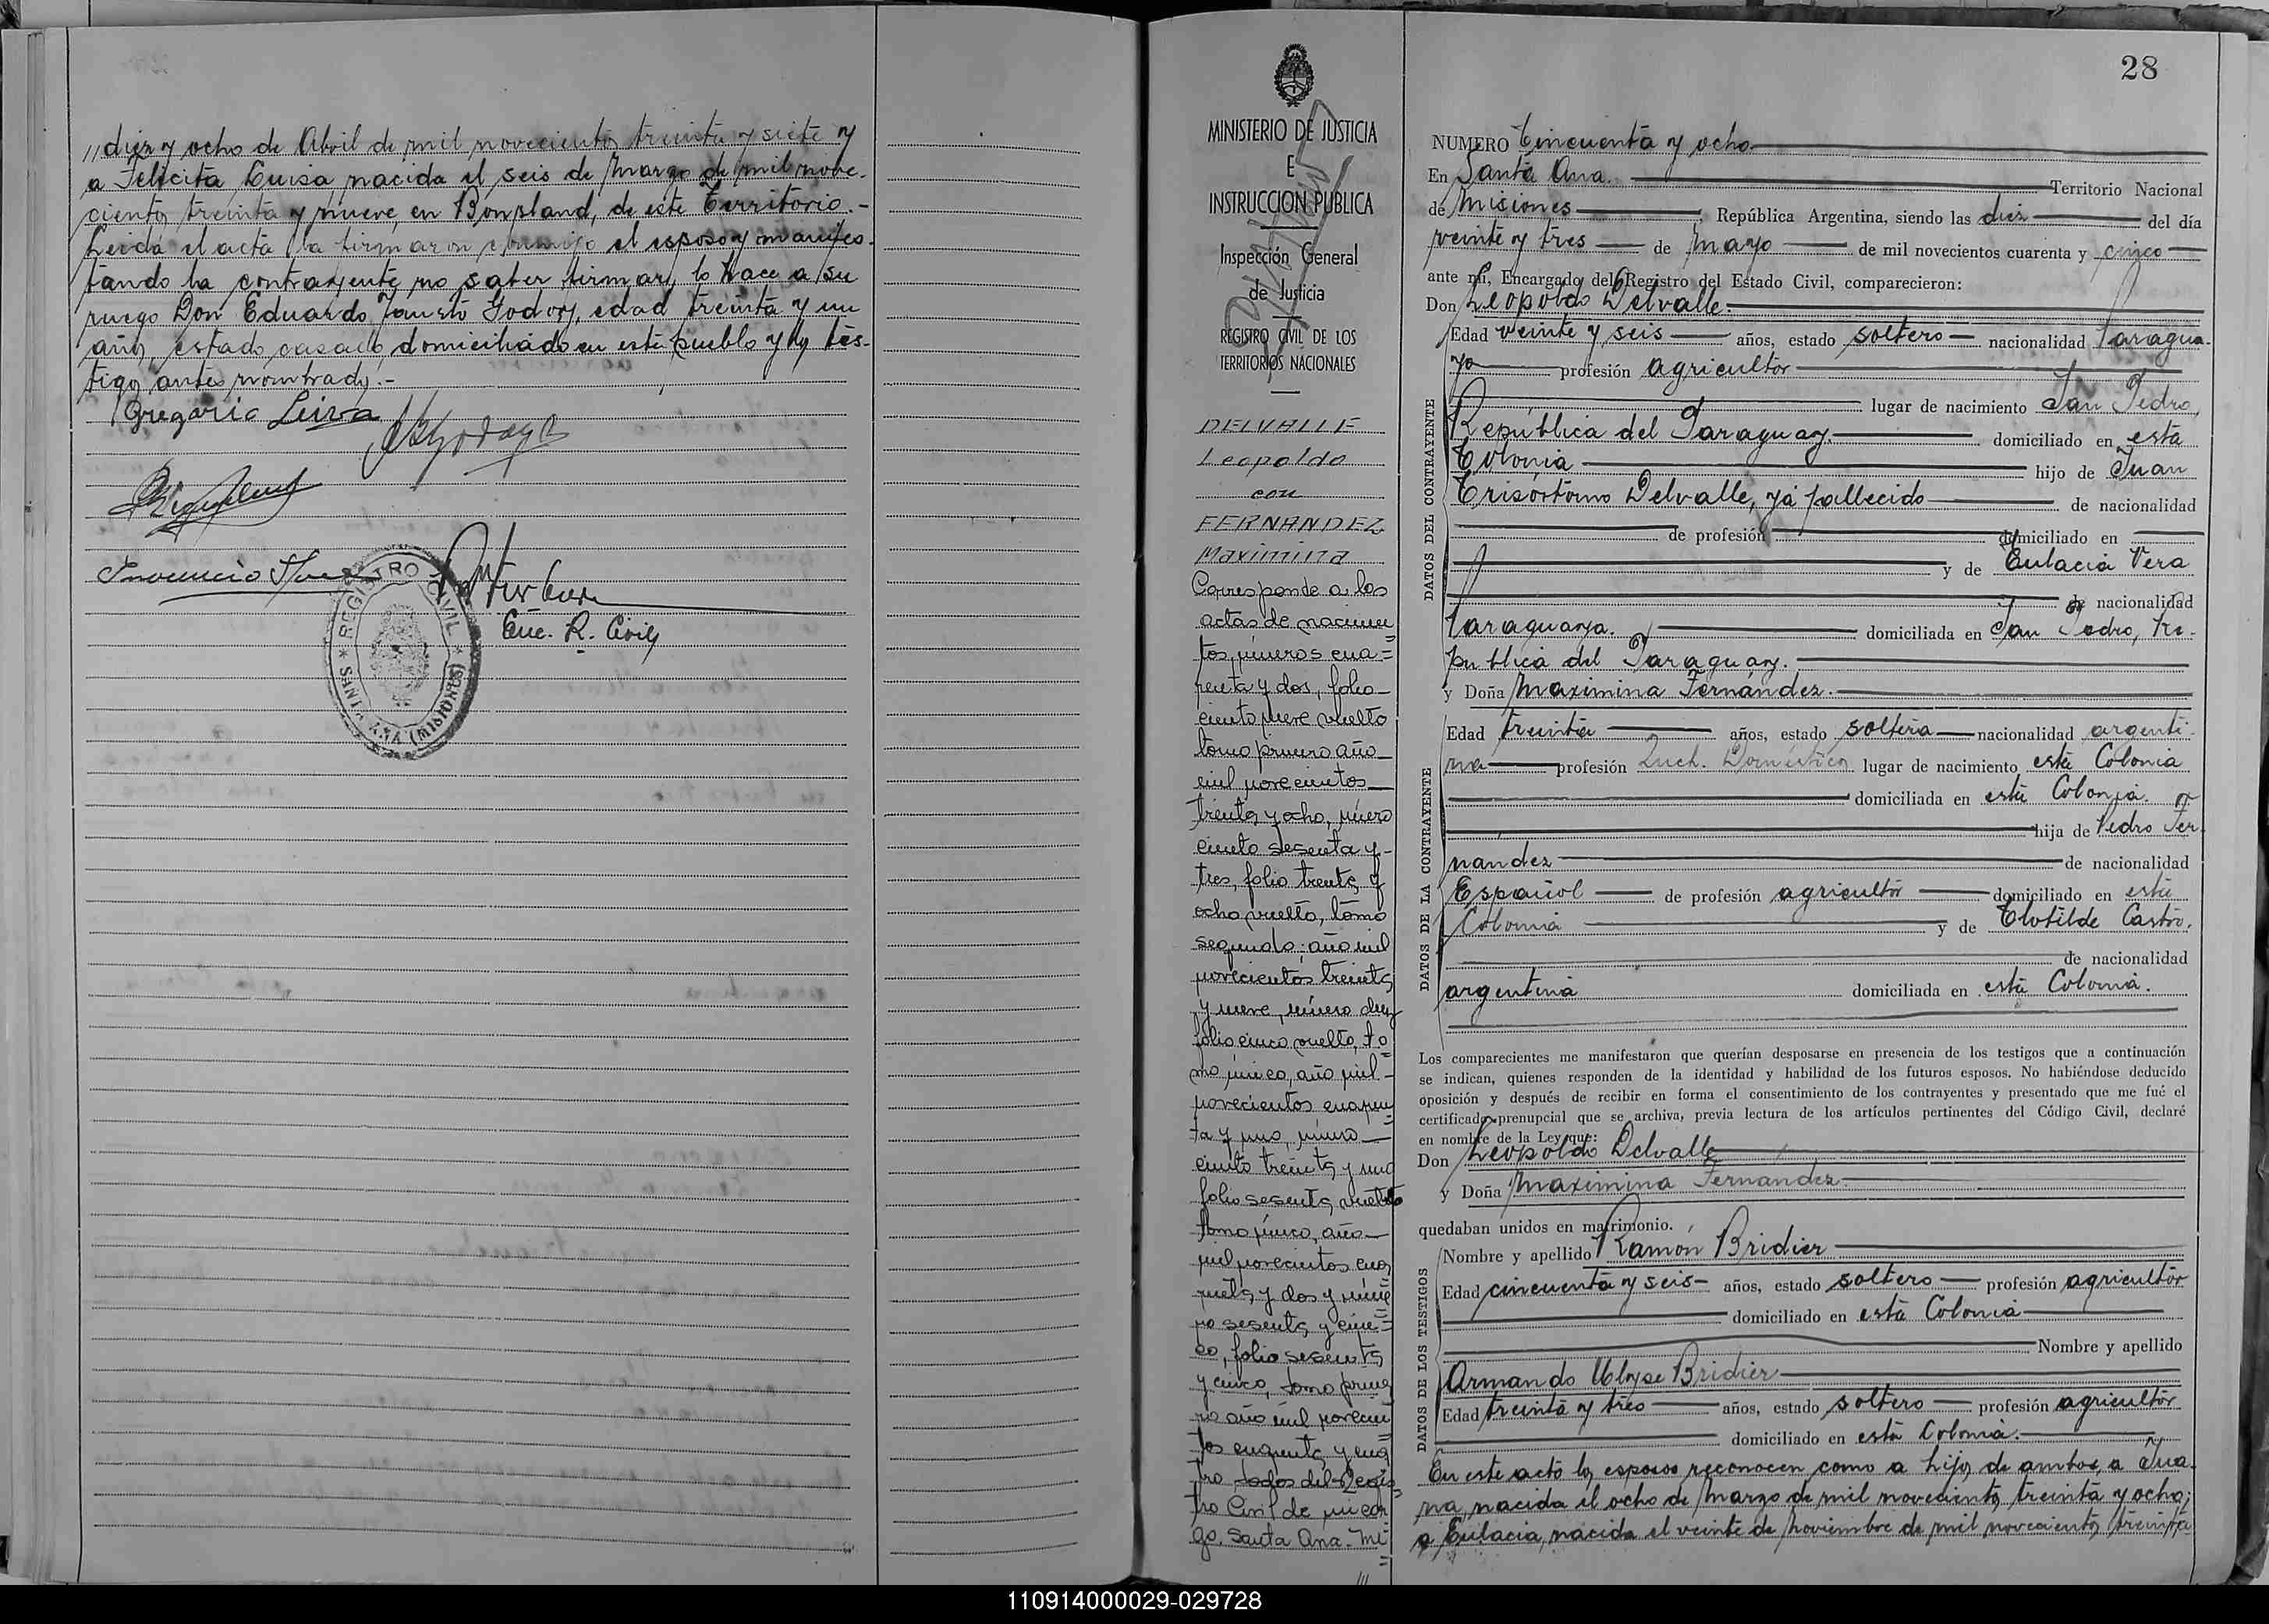 // diez y ocho de Abril de mil novecientos treinta y siete y
a Felicita Luisa, nacida el seis de Marzo de mil nove-
cientos treinta y nueve, en Bonpland, de este Territorio.-
Leída el acta la firmaron conmigo el esposo y manifes-
tando la contrayente no saber firmar, lo hace a su
ruego Don Eduardo Fausto Godoy, edad treinta y un
años, estado casado, domiciliado en este pueblo y los tes-
tigos antes nombrados.-
Gregorio Leiva
Inocencio
Enc. R. Civil
REGISTRO CIVIL * SANTA ANA (MISIONES) *
MINISTERIO DE JUSTICIA
E
INSTRUCCION PUBLICA
Inspección General
de Justicia
REGISTRO CIVIL DE LOS
TERRITORIOS NACIONALES
DELVALLE
Leopoldo
con
FERNANDEZ
Maximina
Corresponde a las
actas de nacimien
tos números cua=
renta y dos, folio
ciento nueve vuelto
tomo primero año
mil novecientos
treinta y ocho, número
ciento sesenta y-
tres, folio treinta y
ocho vuelto, tomo
segundo; año mil
novecientos treinta
y nueve, número diez
folio cinco vuelto, to
mo único, año mil-
novecientos cuaren
ta y uno, número
ciento treinta y uno
folio sesenta vuelto
tomo único, año
mil novecientos cua
renta y dos y núme
ro sesenta y cin=
co, folio sesenta
y cinco, tomo prime
ro año mil novecien
tos cuarenta y cua
tro todos del Regis
tro Civil de mi car
go. Santa Ana. Mi
///
28
NUMERO Cincuenta y ocho
En Santa Ana. Territorio Nacional
de Misiones, República Argentina, siendo las diez del día
veinte y tres de Mayo de mil novecientos cuarenta y cinco
ante mí, Encargado del Registro del Estado Civil, comparecieron:
Don Leopoldo Delvalle.
DATOS DEL CONTRAYENTE
Edad veinte y seis años, estado soltero nacionalidad Paragua-
yo profesión agricultor
lugar de nacimiento San Pedro,
República del Paraguay. domiciliado en esta
Colonia hijo de Juan
Crisóstomo Delvalle, yá fallecido de nacionalidad
de profesión domiciliado en
y de Eulacia Vera
de nacionalidad
Paraguaya. domiciliada en San Pedro, Re-
pública del Paraguay.
y Doña Maximina Fernández.
DATOS DE LA CONTRAYENTE
Edad treinta años, estado soltera nacionalidad argenti-
na profesión Queh. Domésticos lugar de nacimiento esta Colonia
domiciliada en esta Colonia.
hija de Pedro Fer-
nandez de nacionalidad
Español de profesión agricultor domiciliado en esta
Colonia y de Clotilde Castro.
de nacionalidad
argentina domiciliada en esta Colonia.
Los comparecientes me manifestaron que querían desposarse en presencia de los testigos que a continuación
se indican, quienes responden de la identidad y habilidad de los futuros esposos. No habiéndose deducido
oposición y después de recibir en forma el consentimiento de los contrayentes y presentado que me fué el
certificado prenupcial que se archiva, previa lectura de los artículos pertinentes del Código Civil, declaré
en nombre de la Ley que:
Don Leopoldo Delvalle
y Doña Maximina Fernández
quedaban unidos en matrimonio.
DATOS DE LOS TESTIGOS
Nombre y apellido Ramón Bridier
Edad cincuenta y seis- años, estado soltero profesión agricultor
domiciliado en esta Colonia
Nombre y apellido
Armando Ulyse Bridier
Edad treinta y tres años, estado soltero profesión agricultor
domiciliado en esta Colonia.
En este acto los esposos reconocen como a hijos de ambos, a Jua-
na, nacida el ocho de Marzo de mil novecientos treinta y ocho;
a Eulacia, nacida el veinte de Noviembre de mil novecientos treinta
110914000029-029728